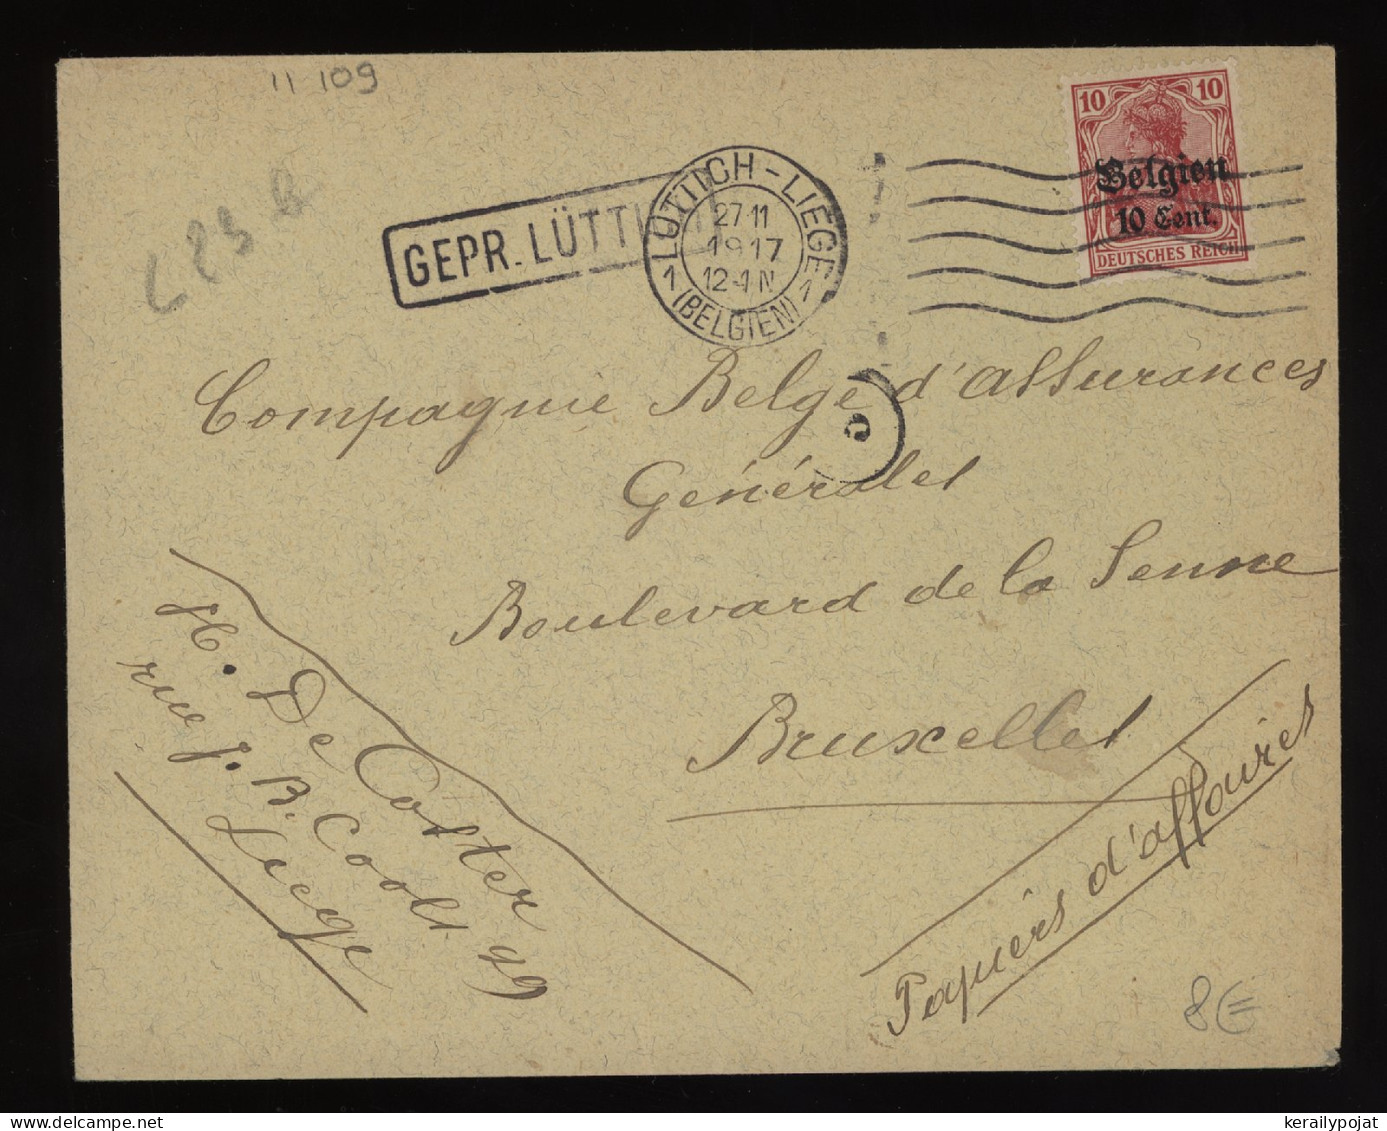 11 109
10 10
Belgien
10 Cent.
DEUTSCHES REICH
GEPR. LÜTTICH
LÜTTICH - LIÉGE
27 11
1917
12-1 N
1 (BELGIEN) 1
L 23 B
Compagnie Belge d'assurances
Générales
Boulevard de la Senne
Bruxelles
H. De Coster
rue J. B. Cools 49
Liege
Papiers d'affaires
8€
kerailypojat